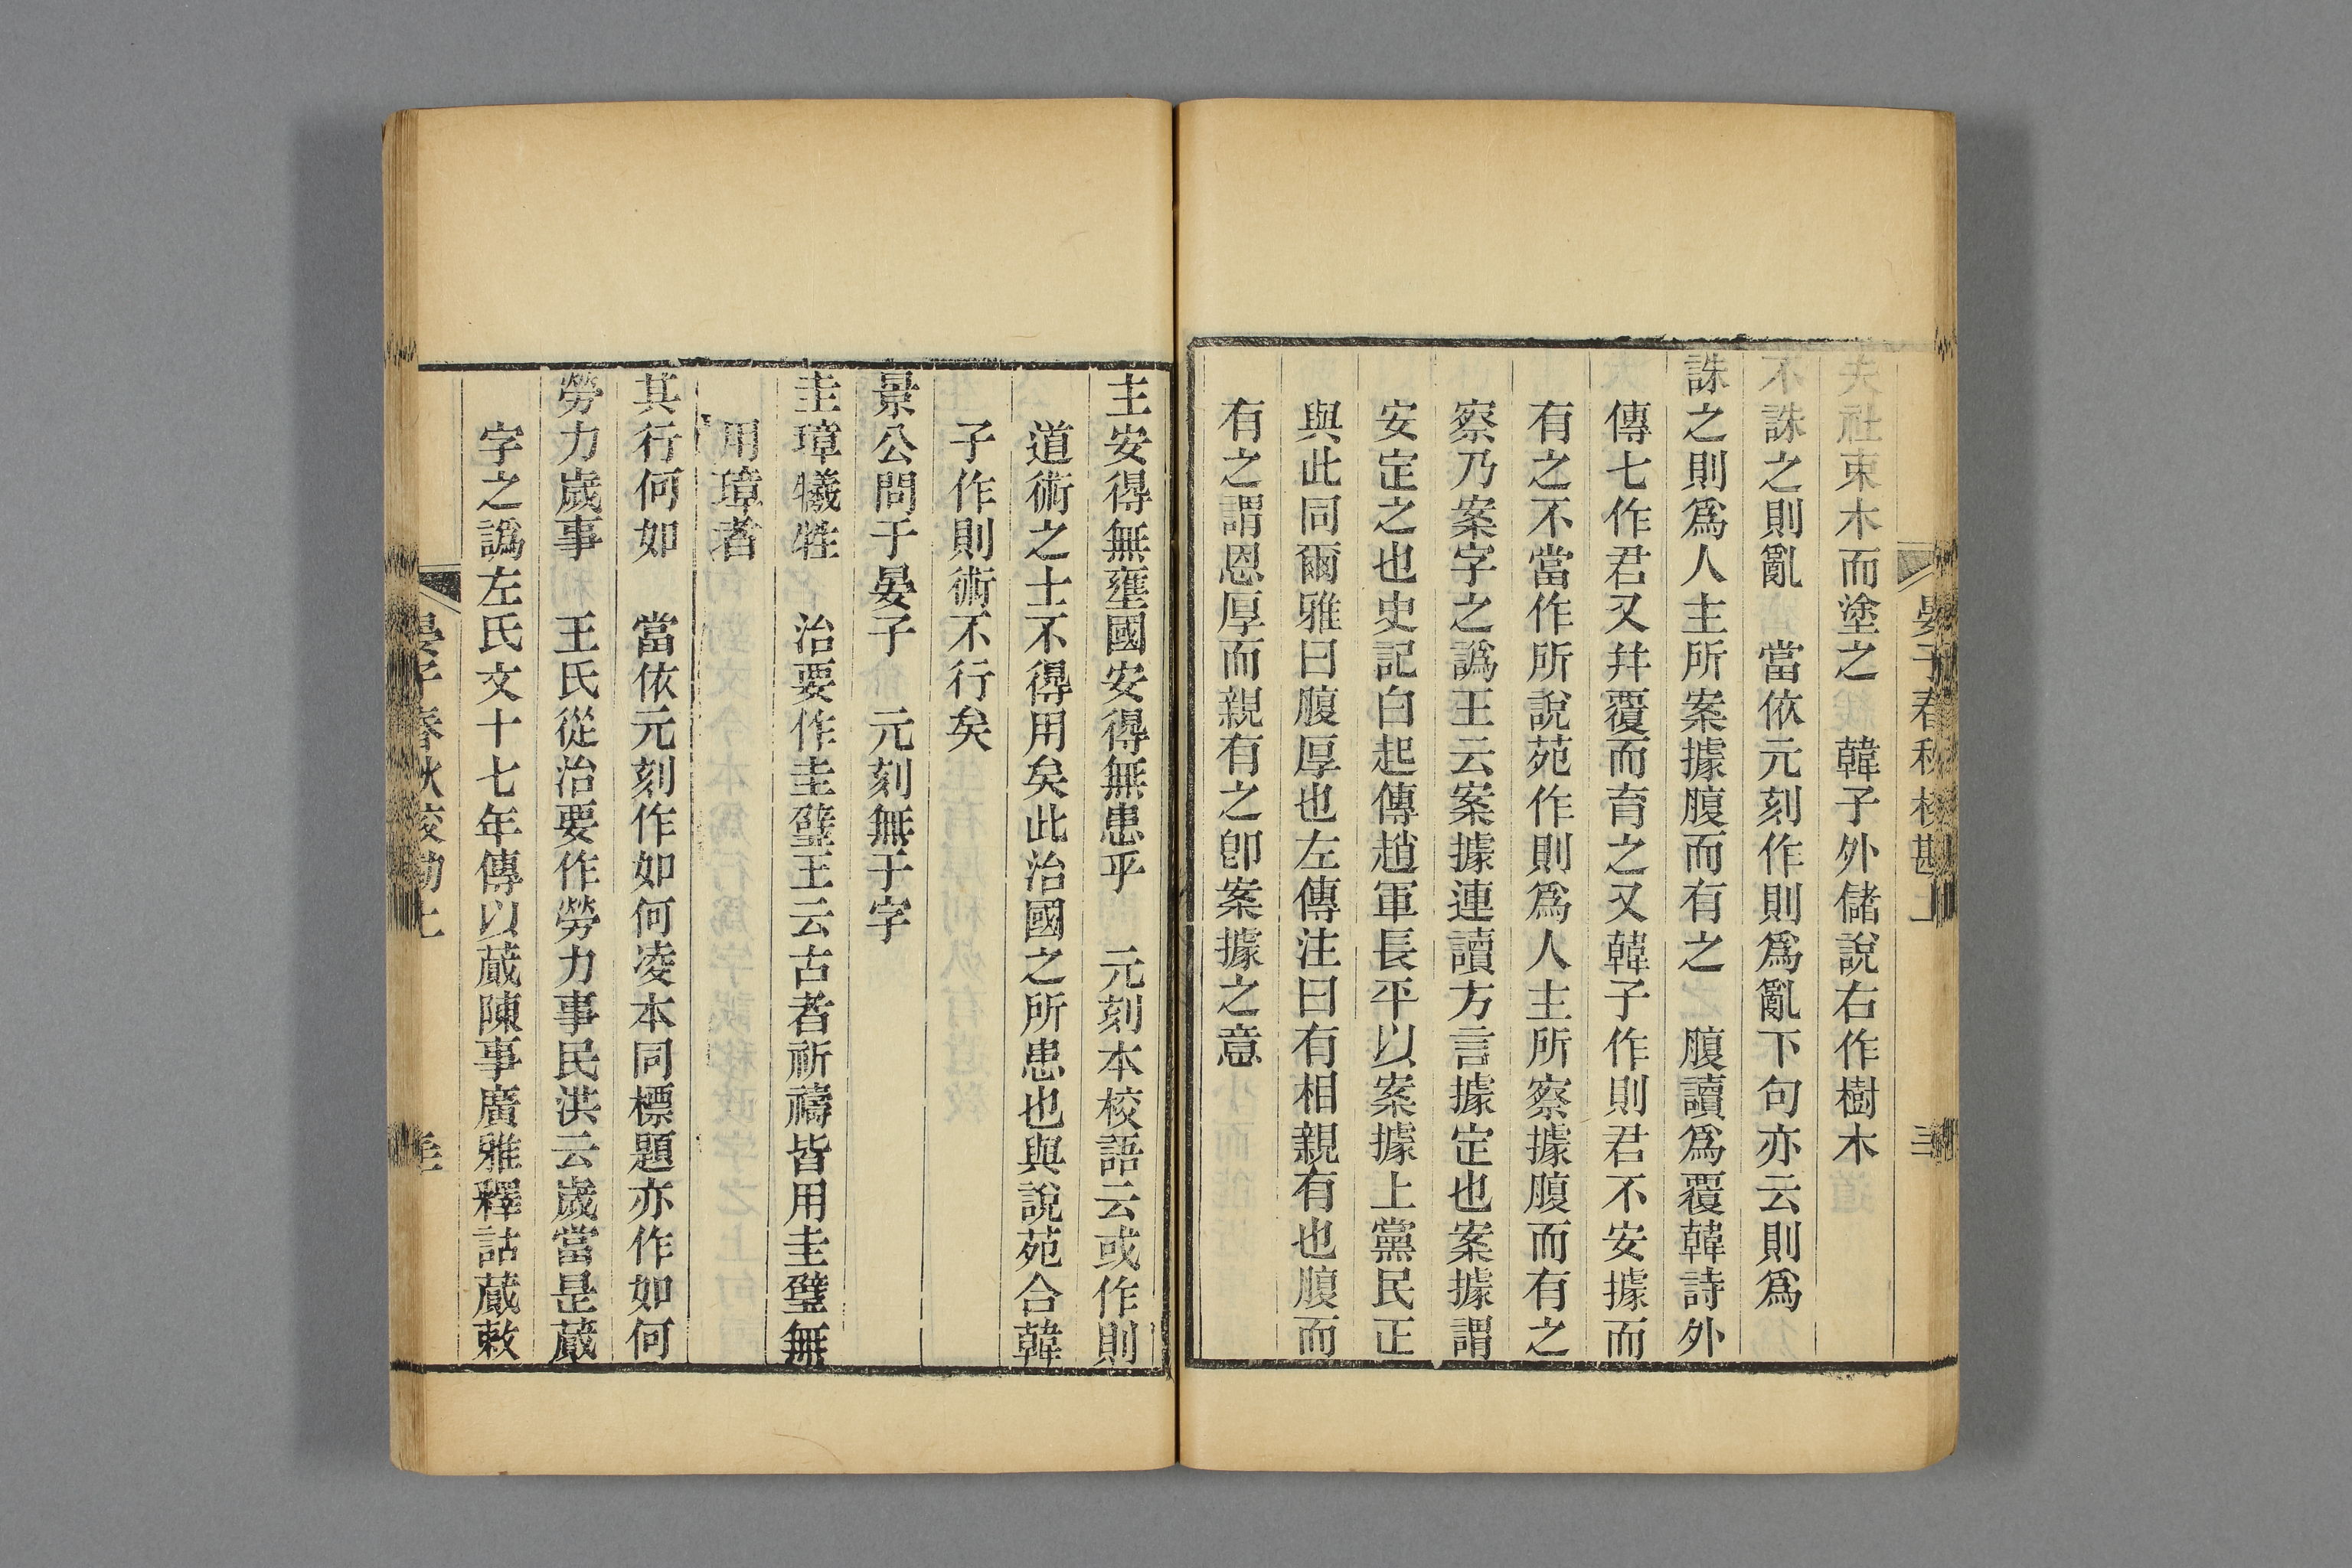 夫社束木而塗之　韓子外儲說右作樹木
不誅之則亂　當依元刻作則爲亂下句亦云則爲
誅之則爲人主所案據腹而有之　腹讀爲覆韓詩外
傳七作君又幷覆而育之又韓子作則君不安據而
有之不當作所說苑作則爲人主所察據腹而有之
察乃案字之譌王云案據連讀方言據定也案據謂
安定之也史記白起傳趙軍長平以案據上黨民正
與此同爾雅曰腹厚也左傳注曰有相親有也腹而
有之謂恩厚而親有之卽案據之意
主安得無壅國安得無患乎　元刻本校語云或作則
道術之士不得用矣此治國之所患也與說苑合韓
子作則術不行矣
景公問于晏子　元刻無于字
圭璋犧牲　治要作圭璧王云古者祈禱皆用圭璧無
用璋者
其行何如　當依元刻作如何凌本同標題亦作如何
勞力歲事　王氏從治要作勞力事民洪云歲當是蕆
字之譌左氏文十七年傳以蕆陳事廣雅釋詁蕆敕
晏子春秋校勘上